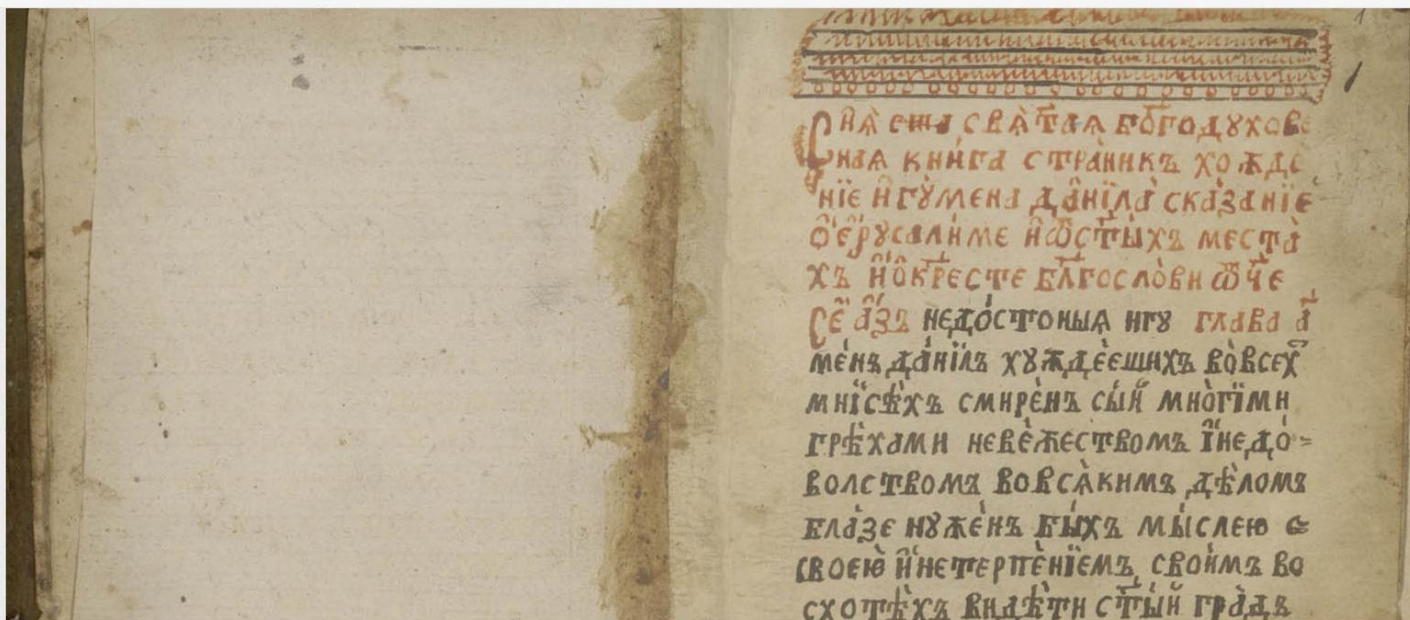 1
Сиѧ̀ сѡа свѧ̀таѧ бг҃одухов
ная кни́га стра́нникъ хожде
нїе и҆гꙋ́мена дани́ла сказа́нїе
ѻ҆ е҆рꙋсали́ме и҆ ѡ҆ ст҃ы́хъ места̀
хъ и҆ ѻ҆ кр҃есте бл҃гослови ѿч҃е
Се̑ а҆́зъ недо́стоныѧ игꙋ глава а҃
ме́нъ да́нїлъ хꙋждѐешихъ во̀ всех
мни́сѣхъ смире́нъ сы́й мно́гїми
грѣ́хами неве́жествомъ и҆ недо́=
волством̾ъ во всѧ́кимъ дѣ́ломъ
бла́зе нꙋже́нъ бы́хъ мы́слею
своею̀ и҆ нетерпѣ́нїемъ свои́мъ во
схотѣ́хъ ви́дѣти ст҃ы́й гра́дъ